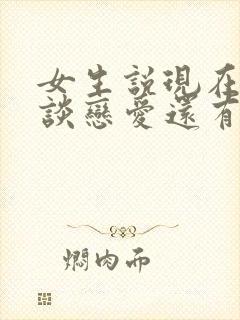 女生説現在
談戀愛還有
燜肉面